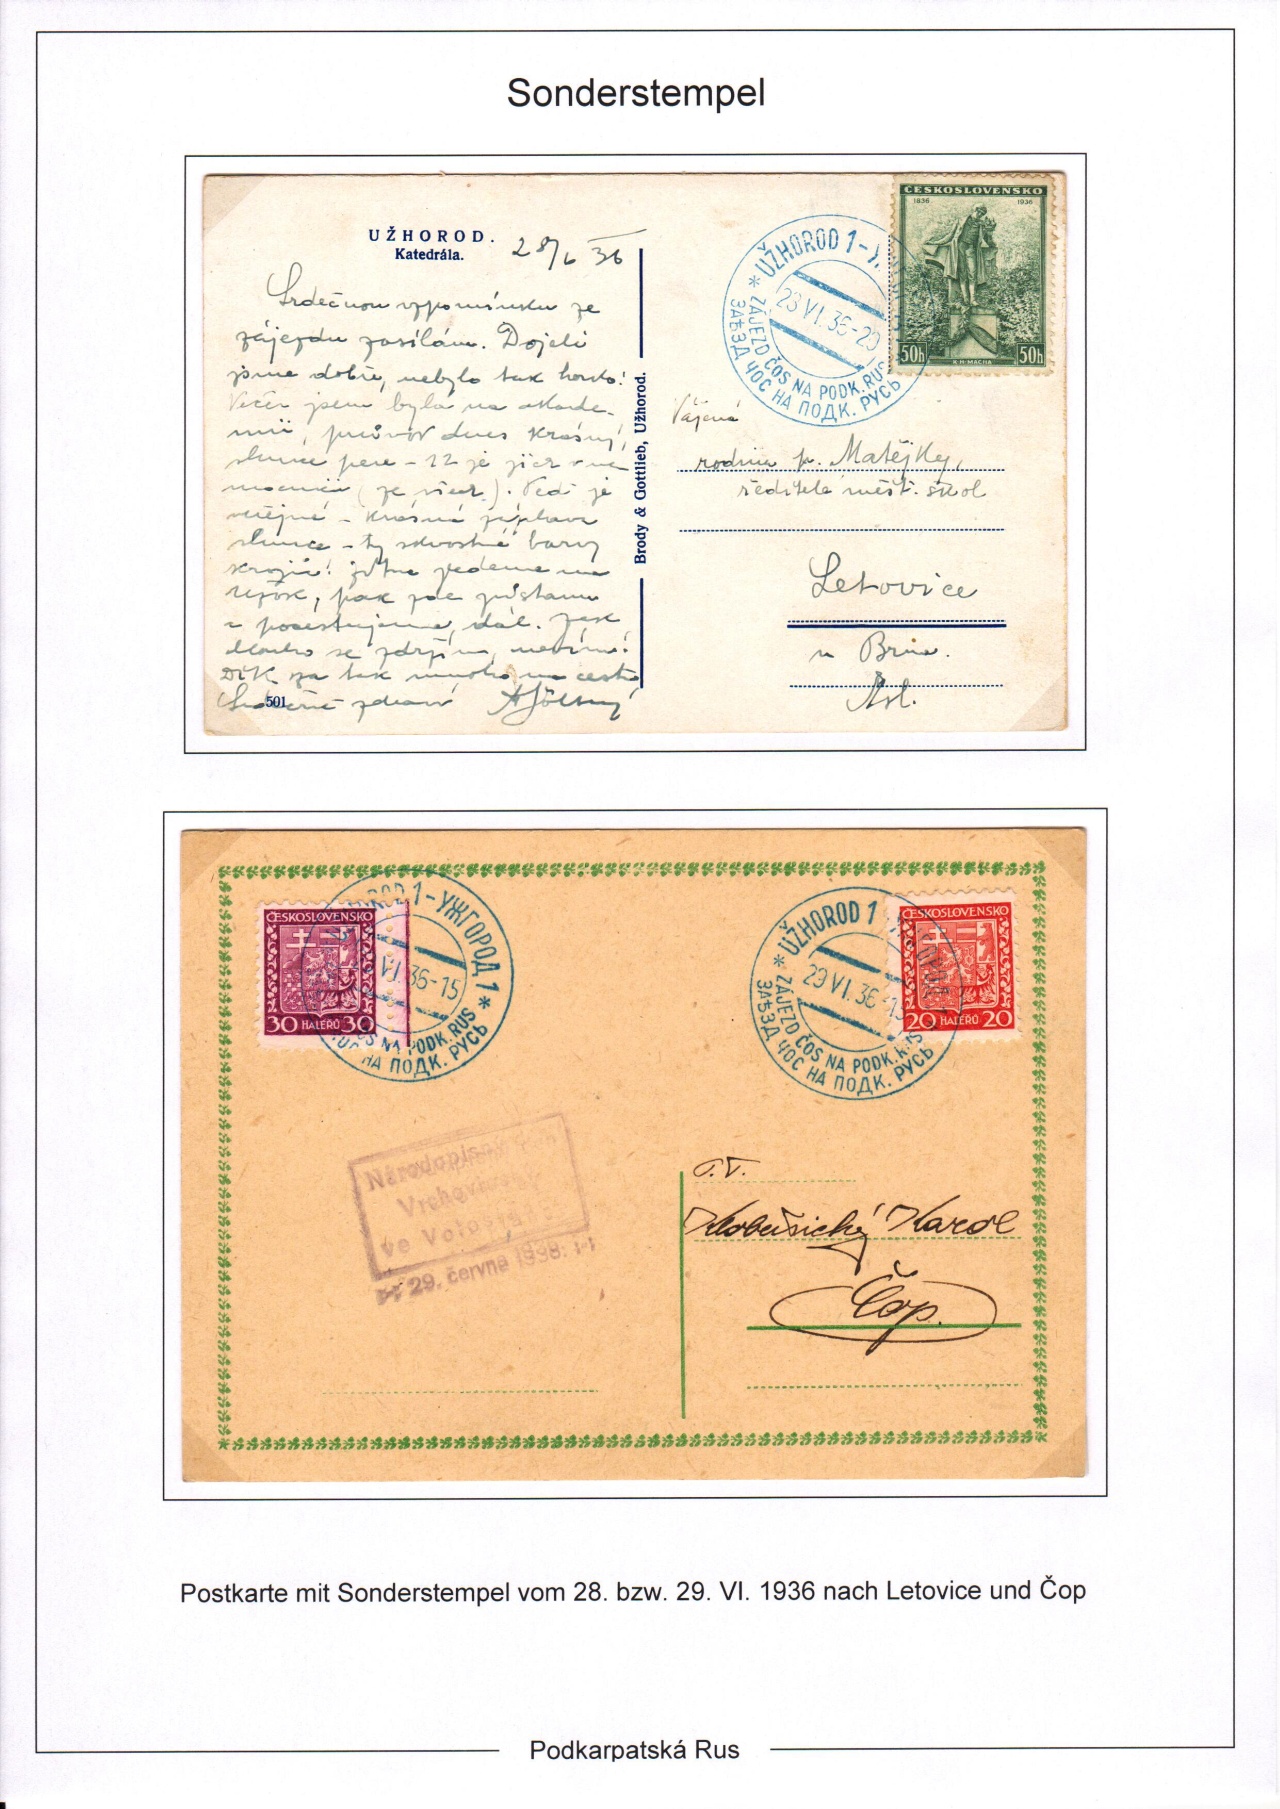 Sonderstempel
UŽHOROD.
Katedrála.
28/6 36
Srdečnou vzpomínku ze
zájezdu zasílám. Dojeli
jsme dobře, nebylo tak horko!
Večer jsem byla na akade-
mii, průvod dnes krásný,
slunce pere - 22 je již v ne
je
- krásná záplava
slunce - ty skvostné barvy
krojů! Zítra jedeme na
pak zde zůstanu
a pocestujeme dál. Jak
dlouho se zdržím, nevím!
Dík za tak mnoho na cestu
Srdečně zdraví
501
Brody & Gottlieb, Užhorod.
ČESKOSLOVENSKO
1836 1936
50h 50h
K·H·MÁCHA
* UŽHOROD 1 -
28 VI. 36 - 20
ZÁJEZD ČOS NA PODK. RUS
ЗАѢЗД ЧОС НА ПОДК. РУСЬ
Vážená
rodina p. Matějky,
ředitele měšť. škol
Letovice
u Brna.
Čsl.
ČESKOSLOVENSKO
30 HALÉŘŮ 30
1 - УЖГОРОД 1 *
VI. 36 - 15
ČOS NA PODK. RUS
НА ПОДК. РУСЬ
ČESKOSLOVENSKO
20 HALÉŘŮ 20
* UŽHOROD 1
29 VI. 36
ZÁJEZD ČOS NA PODK. RUS
ЗАѢЗД ЧОС НА ПОДК. РУСЬ
Národopisný
ve
29. června
T.T.
Karol
Čop.
Postkarte mit Sonderstempel vom 28. bzw. 29. VI. 1936 nach Letovice und Čop
Podkarpatská Rus